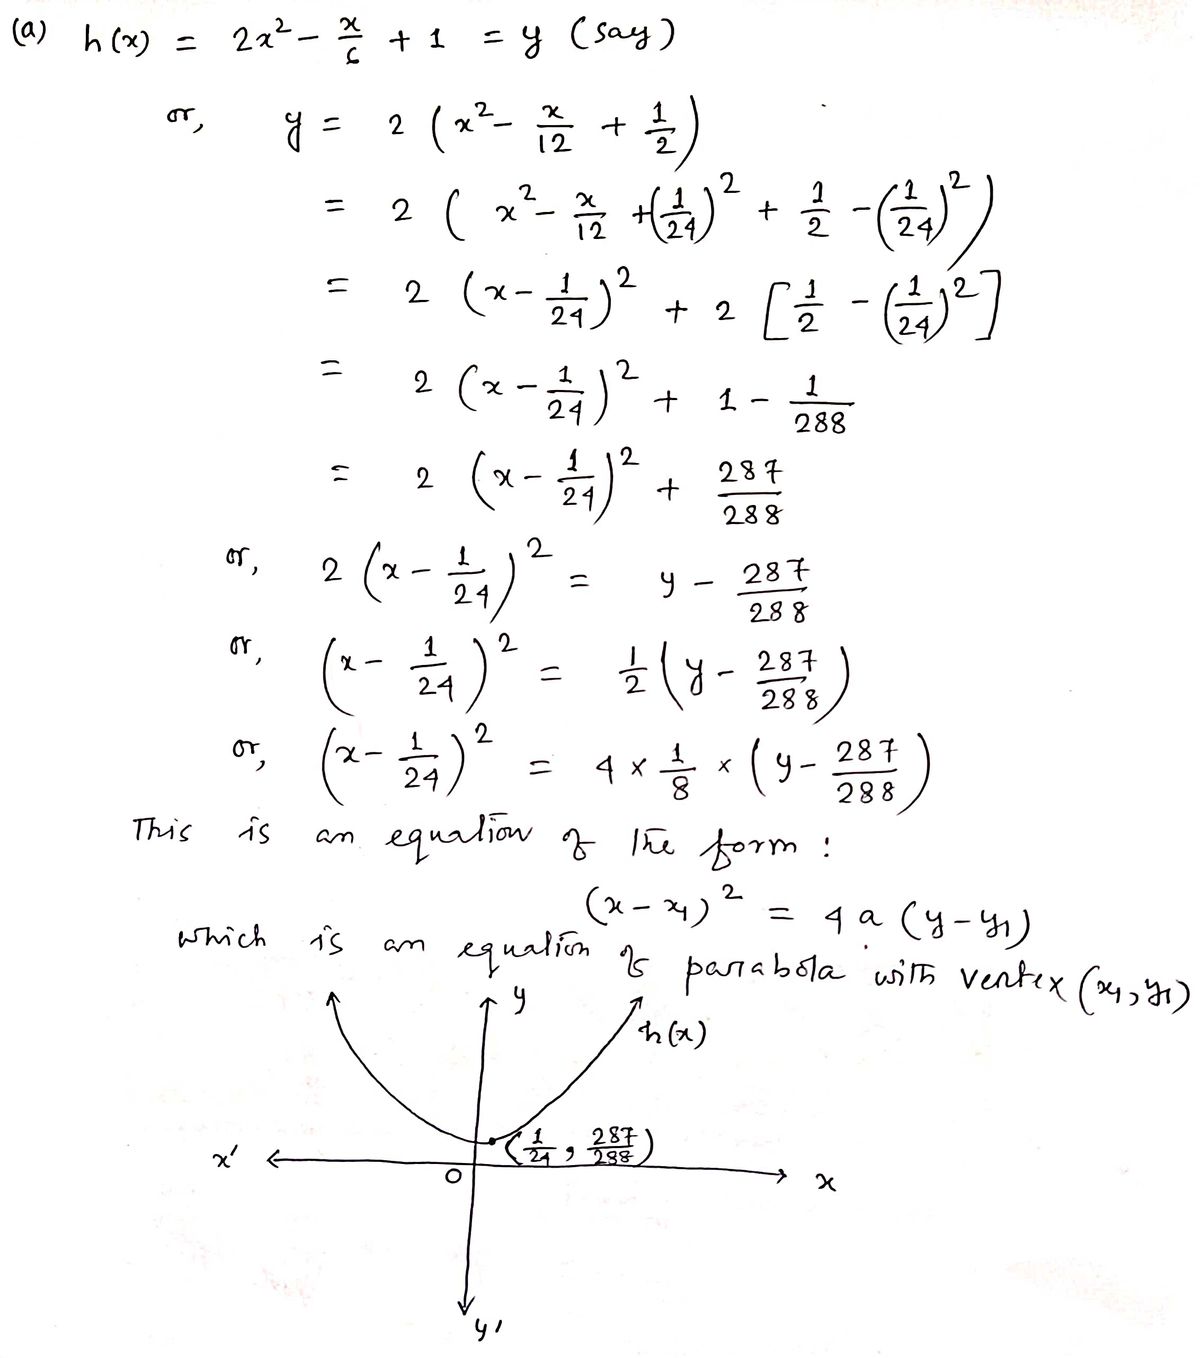 (a) h(x) = 2x² - x/6 + 1 = y (say)
or, y = 2 (x² - x/12 + 1/2)
= 2 ( x² - x/12 + (1/24)² + 1/2 - (1/24)²)
= 2 (x - 1/24)² + 2 [1/2 - (1/24)²]
= 2 (x - 1/24)² + 1 - 1/288
= 2 (x - 1/24)² + 287/288
or, 2 (x - 1/24)² = y - 287/288
or, (x - 1/24)² = 1/2 (y - 287/288)
or, (x - 1/24)² = 4 × 1/8 × (y - 287/288)
This is an equation of the form :
(x - x₁)² = 4a (y - y₁)
which is an equation of parabola with vertex (x₁, y₁)
y
h(x)
(1/24, 287/288)
x'
O
x
y'